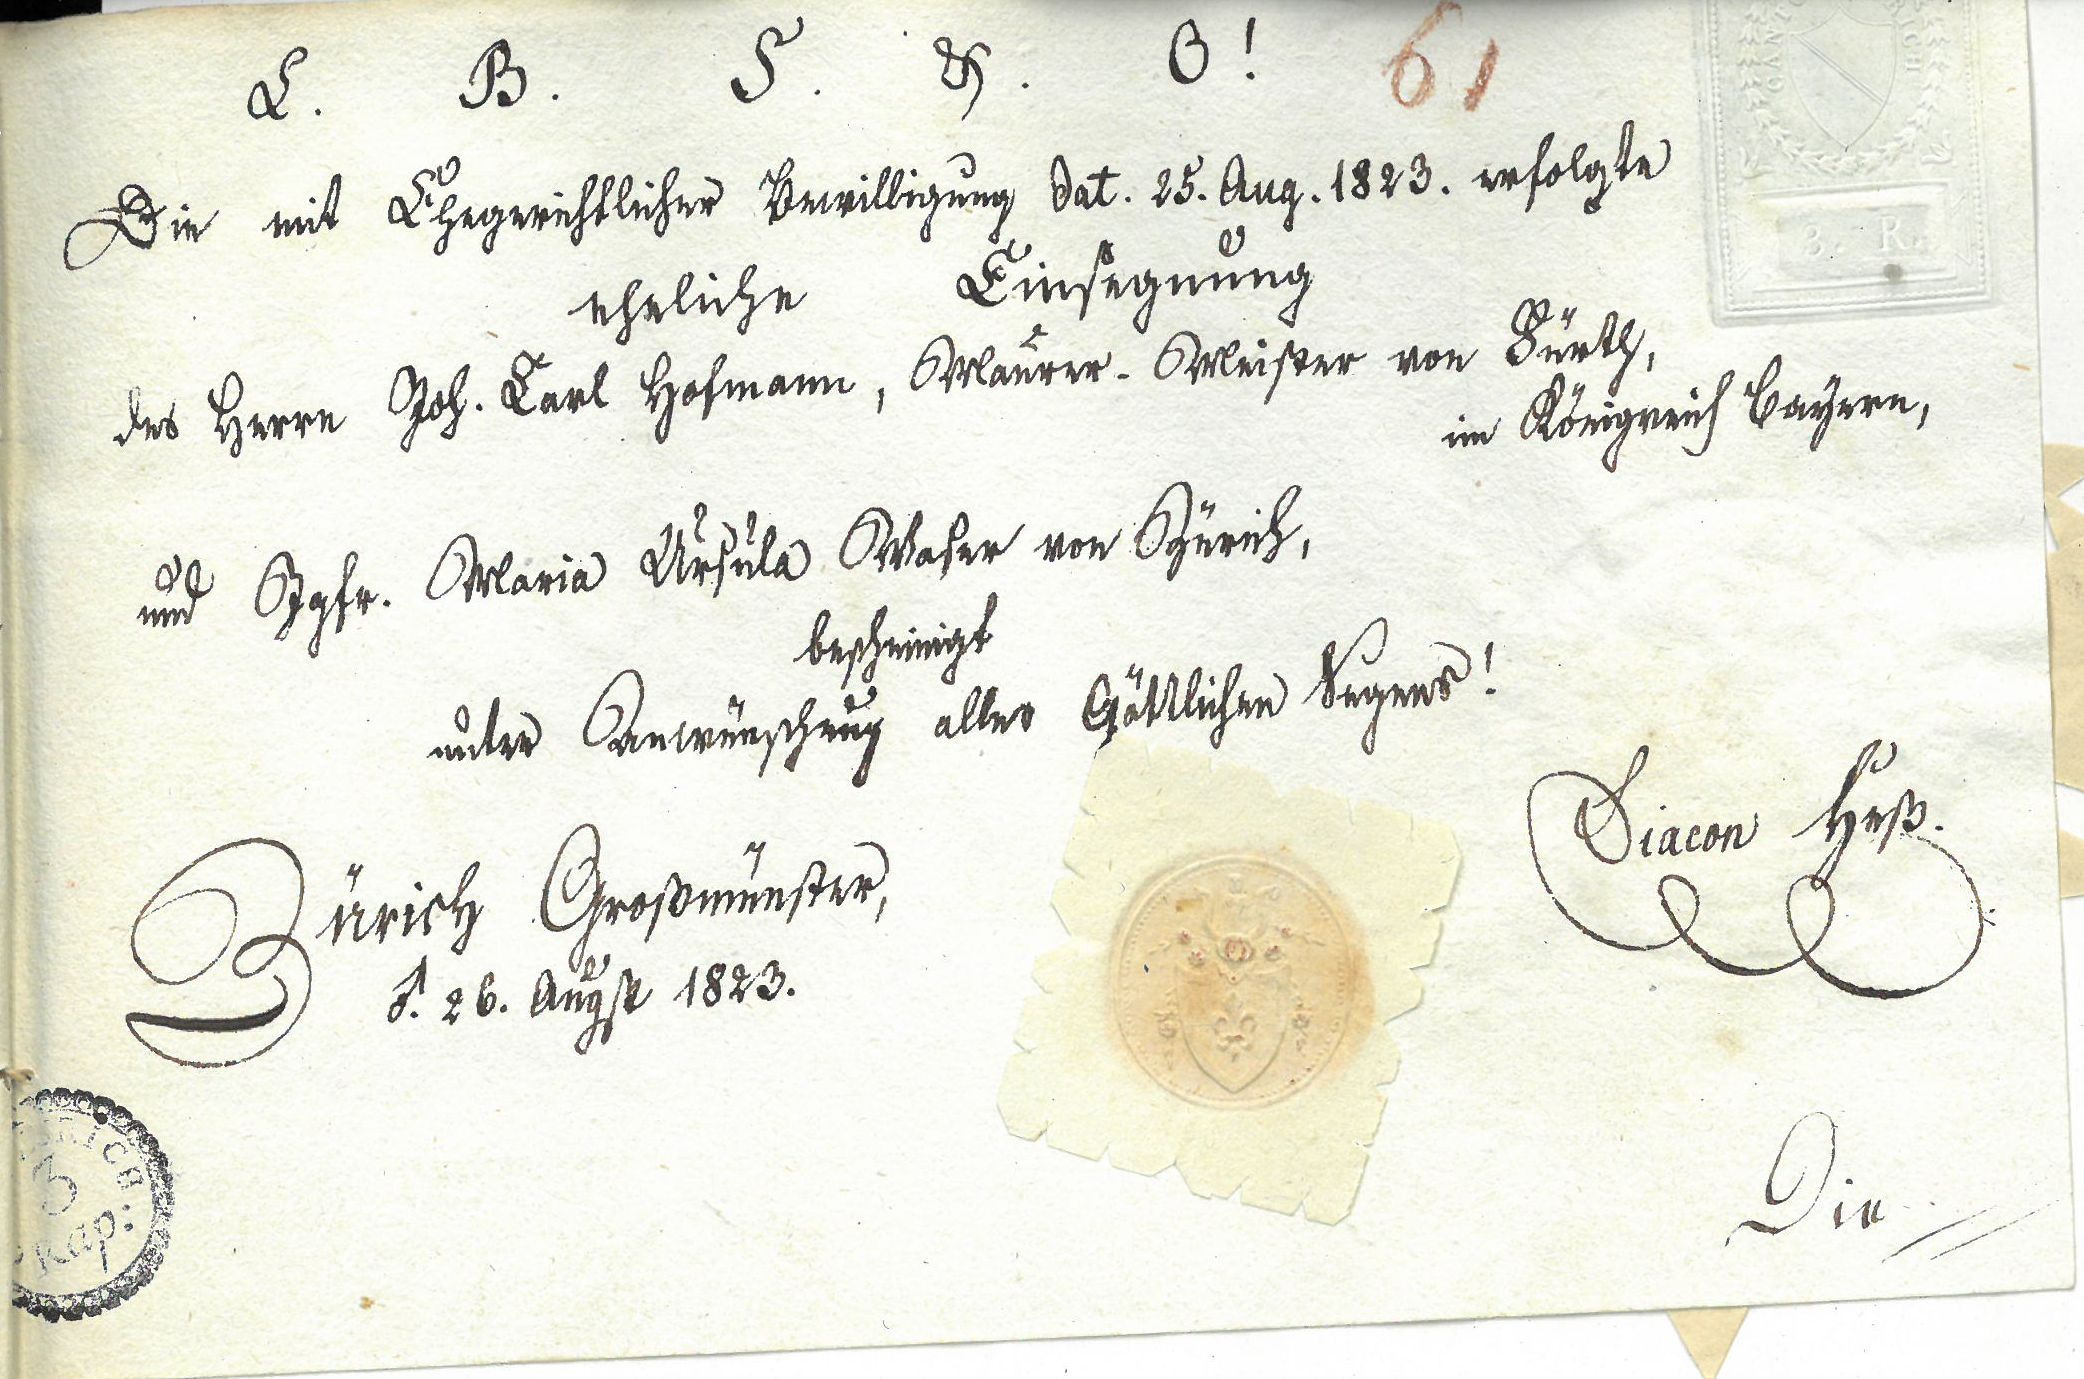 L. B. S. & O! 61
Die mit Ehegerichtlicher Bewilligung dat. 25. Aug. 1823. erfolgte
eheliche Einsegnung
des Herrn Joh. Carl Hofmann, Maurer-Meister von Fürth,
im Königreich Bayern,
und Jgfr. Maria Ursula Waser von Zürich,
bescheinigt
unter Anwünschung alles Göttlichen Segens!
Diacon Heß.
Zürich Großmünster,
d. 26. Augst 1823.
3
Rap:
Die
3. R.